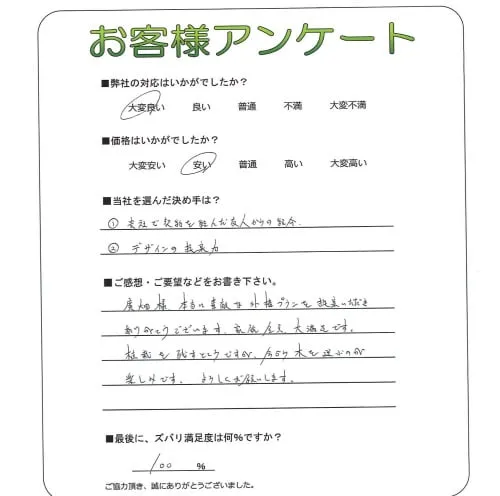 お客様アンケート
■弊社の対応はいかがでしたか?
大変良い 良い 普通 不満 大変不満
■価格はいかがでしたか?
大変安い 安い 普通 高い 大変高い
■当社を選んだ決め手は?
① 貴社で契約を結んだ友人からの紹介.
② デザインの提案力
■ご感想・ご要望などをお書き下さい。
廣畑様 本当に素敵な外構プランを提案いただき
ありがとうございます。家族全員 大満足です。
植栽を残すところですが、今から木を選ぶのが
楽しみです。 よろしくお願いします。
■最後に、ズバリ満足度は何%ですか?
100 %
ご協力頂き、誠にありがとうございました。